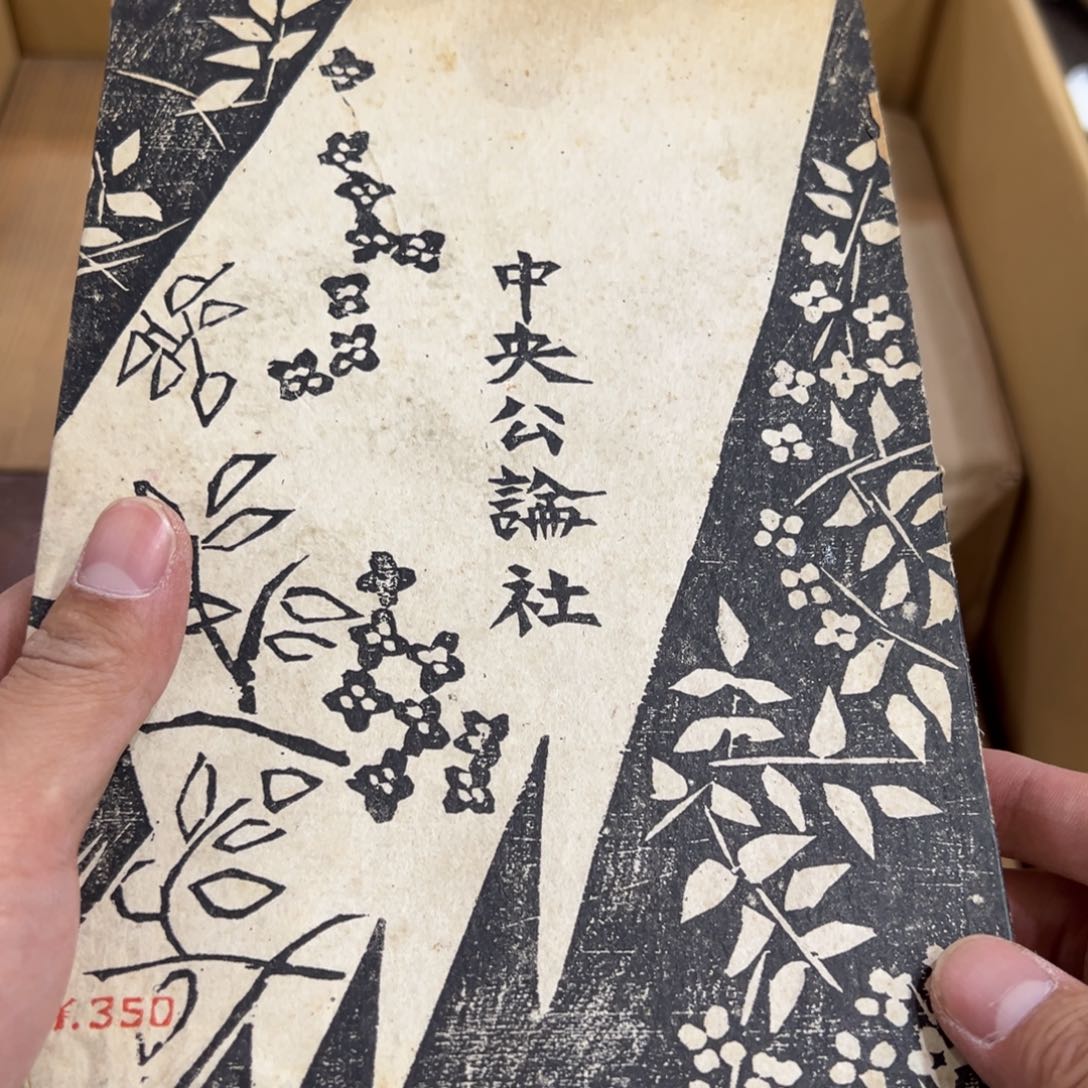 中央公論社
¥.350